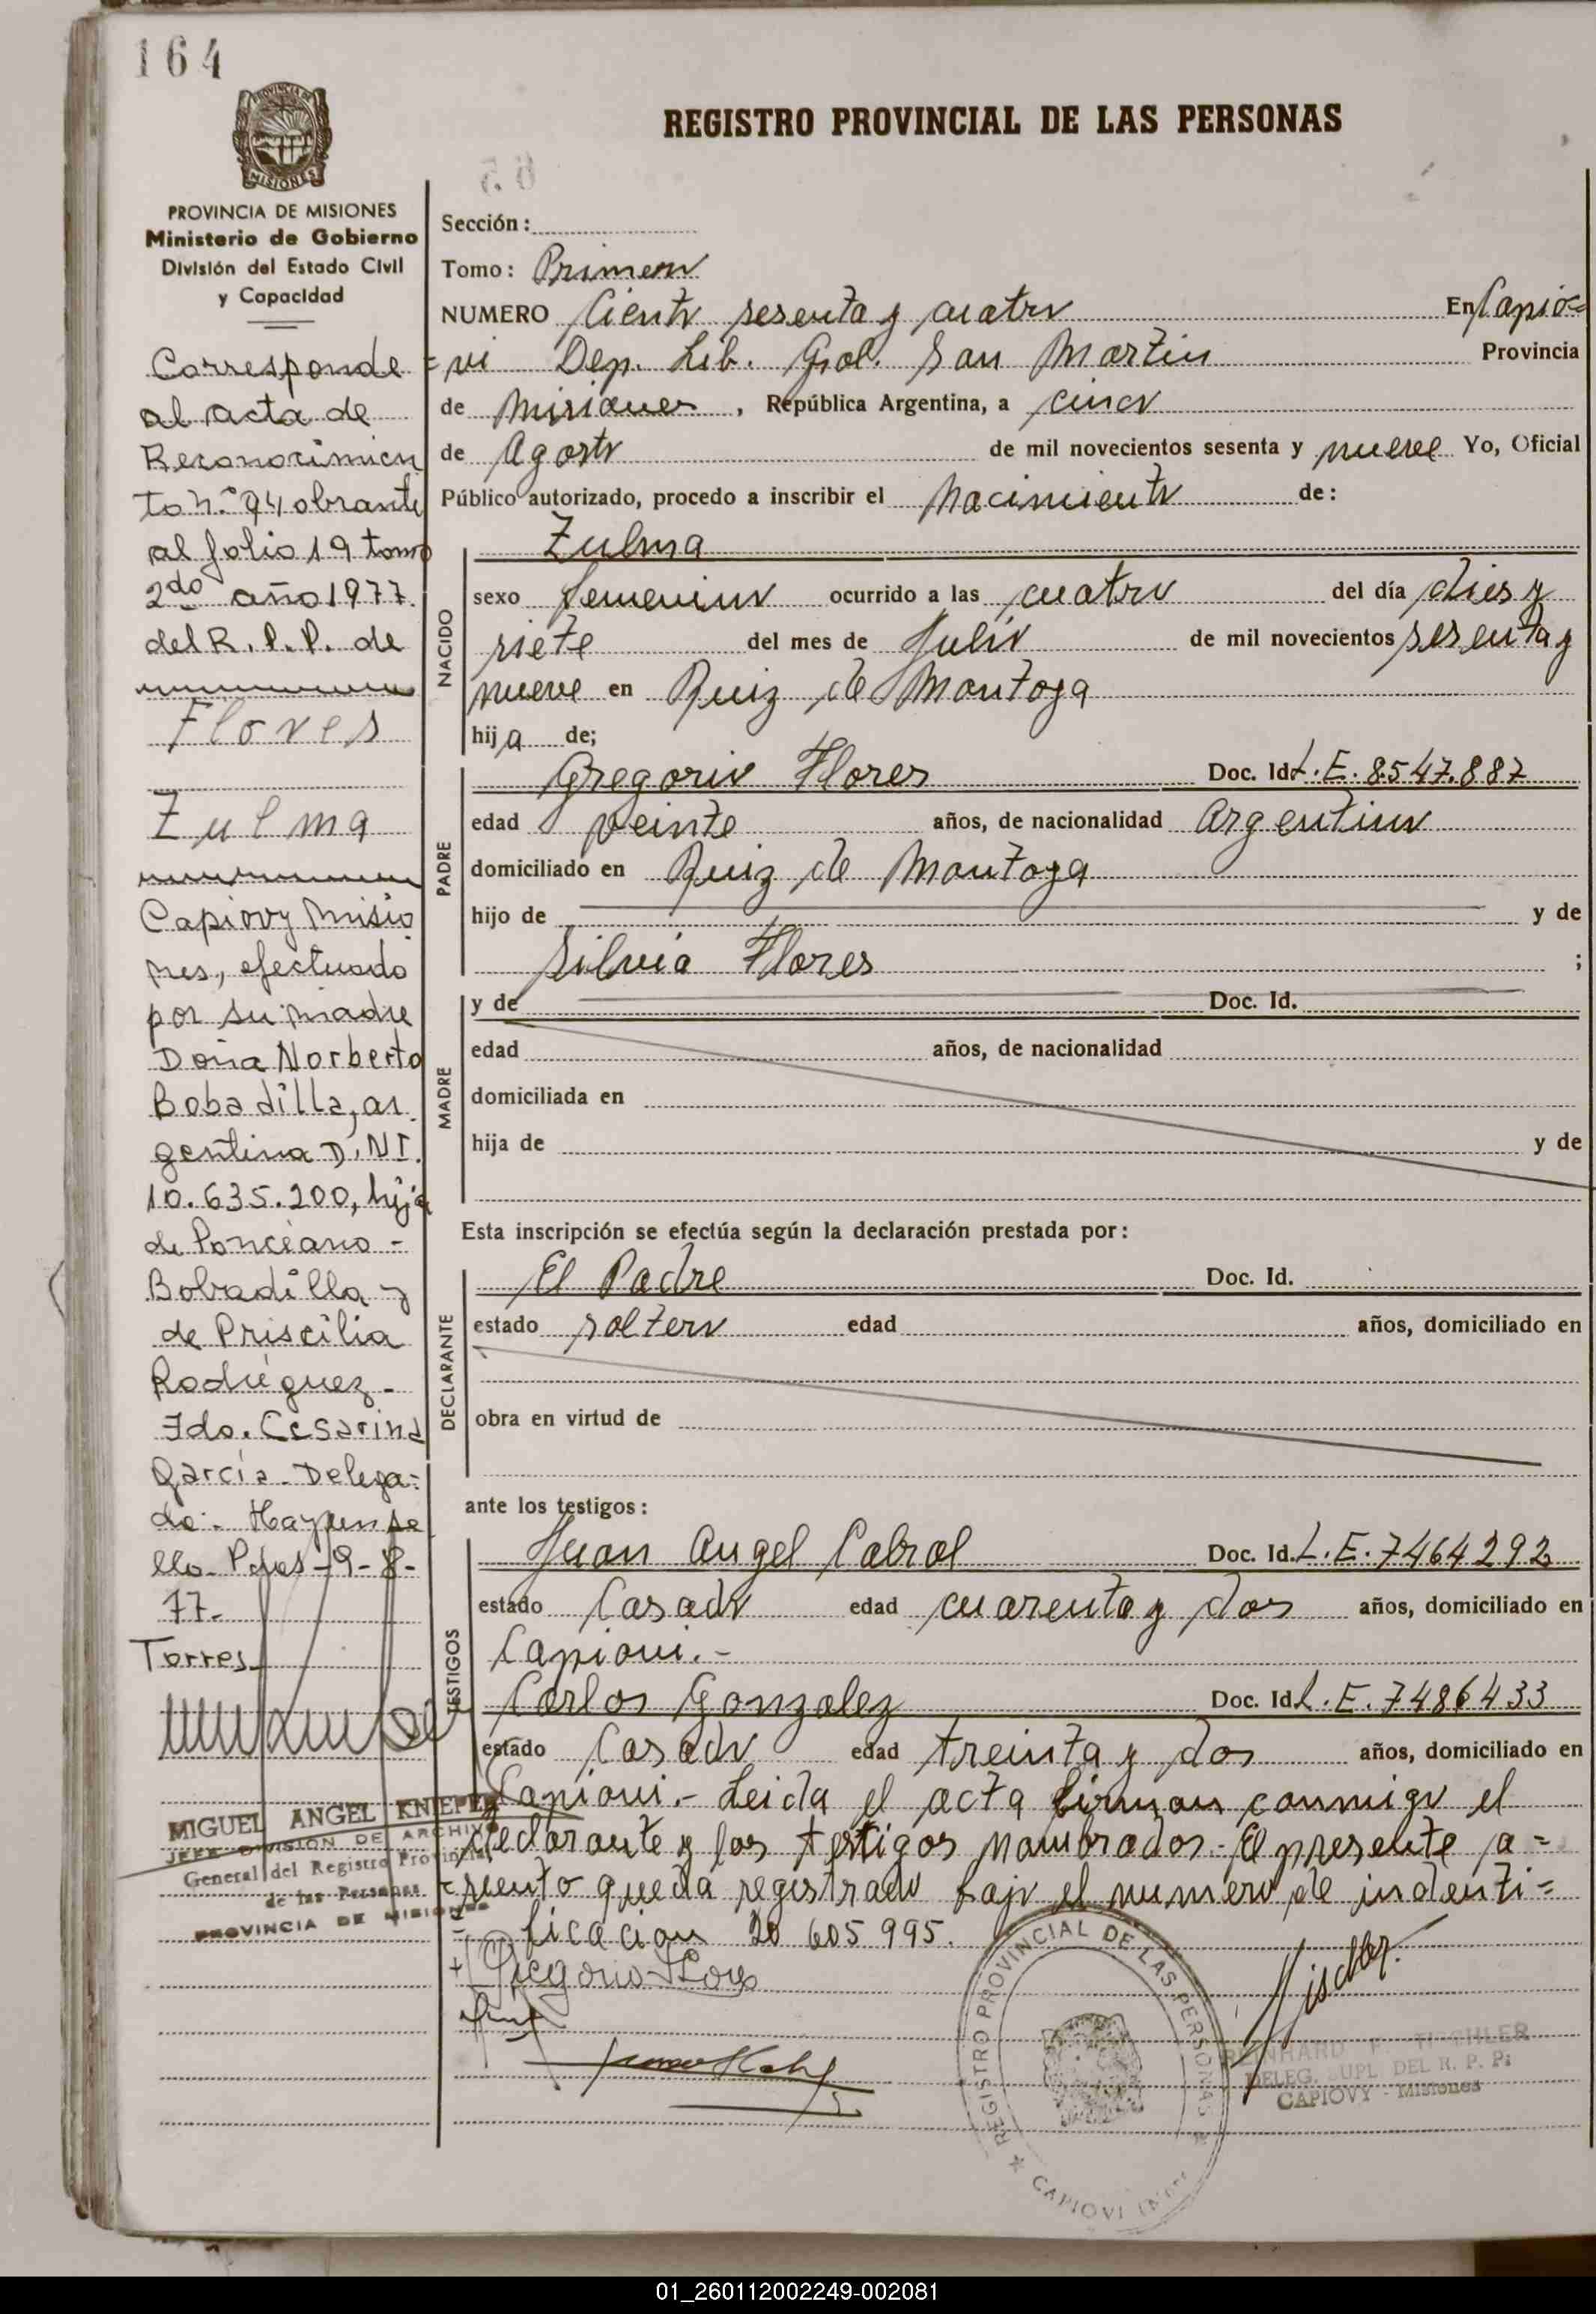 164
REGISTRO PROVINCIAL DE LAS PERSONAS
PROVINCIA DE MISIONES
Ministerio de Gobierno
División del Estado Civil
y Capacidad
Corresponde
al acta de
Reconocimien
to N.° 94 obrante
al folio 19 tomo
2do año 1977.
del R. P. P. de
Flores
Zulma
Capiovy Misio
nes, efectuado
por su madre
Doña Norberta
Bobadilla, ar
gentina D.NI.
10.635.200, hija
de Ponciano -
Bobadilla y
de Priscilia
Rodriguez -
Fdo. Cesarina
García - Delega=
do - Hay un se
llo - Pdas - 9 - 8 -
77-
Torres
MIGUEL ANGEL KNIEPE
JEFE DIVISION DE ARCHIVO
General del Registro Provincial
de las Personas
PROVINCIA DE MISIONES
Sección:
Tomo: Primero
NUMERO Ciento sesenta y cuatro En Capio=
=vi Dep. Lib. Gral. San Martin Provincia
de Misiones, República Argentina, a cinco
de Agosto de mil novecientos sesenta y nueve Yo, Oficial
Público autorizado, procedo a inscribir el Nacimiento de:
NACIDO
Zulma
sexo femenino ocurrido a las cuatro del día dies y
siete del mes de Julio de mil novecientos sesenta y
nueve en Ruiz de Montoya
hija de;
PADRE
Gregorio Flores Doc. Id. L.E. 8.547.887
edad veinte años, de nacionalidad argentino
domiciliado en Ruiz de Montoya
hijo de y de
Silvia Flores ;
MADRE
y de Doc. Id.
edad años, de nacionalidad
domiciliada en
hija de y de
Esta inscripción se efectúa según la declaración prestada por:
DECLARANTE
El Padre Doc. Id.
estado soltero edad años, domiciliado en
obra en virtud de
ante los testigos:
TESTIGOS
Juan Angel Cabral Doc. Id. L.E. 7464292
estado Casado edad cuarenta y dos años, domiciliado en
Capiovi.-
Carlos Gonzalez Doc. Id. L.E. 7486433
estado Casado edad treinta y dos años, domiciliado en
Capiovi.- Leida el acta firman conmigo el
declarante y los testigos nombrados.- El presente a=
=siento queda registrado bajo el numero de indenti=
=ficacion 20 605 995.
Gregorio Flores
REGISTRO PROVINCIAL DE LAS PERSONAS
CAPIOVI
REINHARD F. TISCHLER
DELEG. SUPL DEL R. P. P.
CAPIOVY - Misiones
01_260112002249-002081